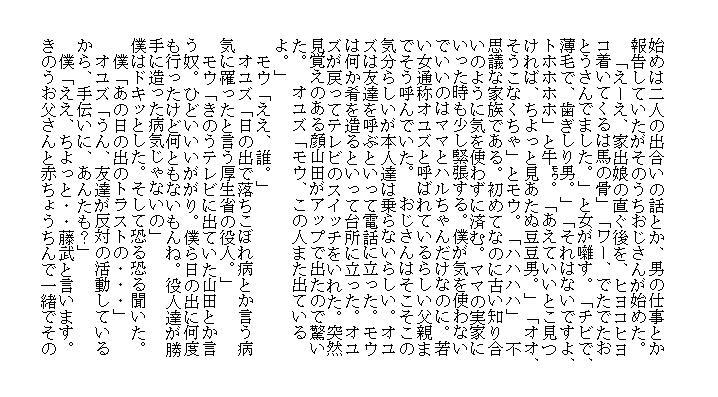 始めは二人の出合いの話とか、男の仕事とか
報告していたがそのうちおじさんが始めた。
「えーえ、家出娘の直ぐ後を、ヒヨコヒヨ
コ着いてくるは馬の骨」「ワー、でたでたお
とうさんでました。」と女が囃す。「チビで、
薄毛で、歯ぎしり男。」「それはないですよ、
トホホホホ」と牛。「あえていいとこ見つ
ければ、ちょっと見あたぬ豆豆男。」「オオ、
そうこなくちゃ」とモウ。「ハハハハ」　不
思議な家族である。初めてなのに古い知り合
いのように気を使わずに済む。ママの実家に
いった時も少し緊張する。僕が気を使わない
でいいのはママとハルちゃんだけなのに。若
い女通称オユズと呼ばれているらしい父親ま
でそう呼んでいた。　おじさんはそこそこの
気分らしいが本人達は乗らないらしい。オユ
ズは友達を呼ぶといって電話に立った。モウ
は何か肴を造るといって台所に立った。オユ
ズが戻ってテレビのスイッチをいれた。突然
見覚えのある顔山田がアップで出たので驚い
た。　オユズ「モウ、この人また出ている
よ。」
モウ「ええ、誰。」
オユズ「日の出で落ちこぼれ病とか言う病
気に罹ったと言う厚生省の役人。」
モウ「きのうテレビに出ていた山田とか言
う奴。ひどいいいがかり。僕ら日の出に何度
も行ったけど何ともないもんね。役人達が勝
手に造った病気じゃないの」
僕はドキッとした。そして恐る恐る聞いた。
僕「あの日の出のトラストの・・・」
オユズ「うん、友達が反対の活動している
から、手伝いに、あんたも？」
僕「ええ、ちょっと・・藤武と言います。
きのうお父さんと赤ちょうちんで一緒でその